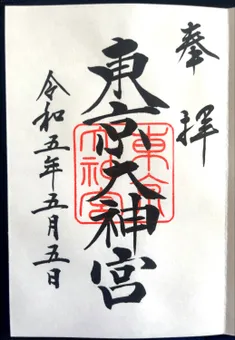 奉拝
東京大神宮
令和五年五月五日
東京大神宮